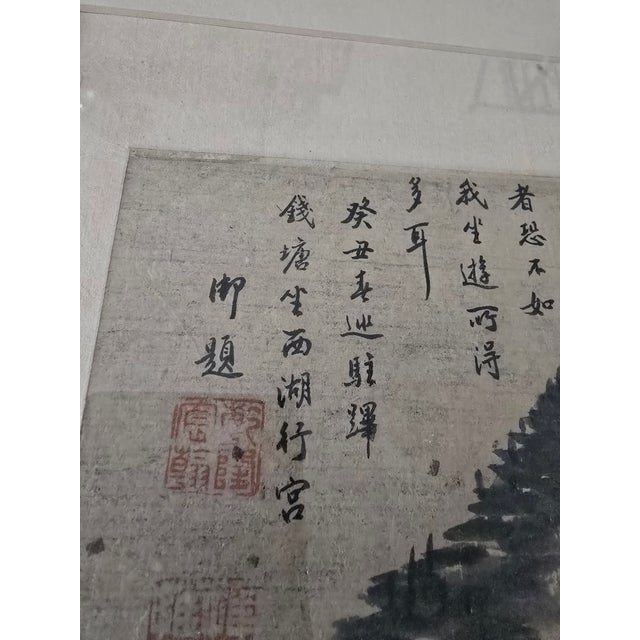 者恐不如
我坐遊所得
多耳
癸丑春巡駐蹕
錢塘坐西湖行宮
御題
乾隆
宸翰